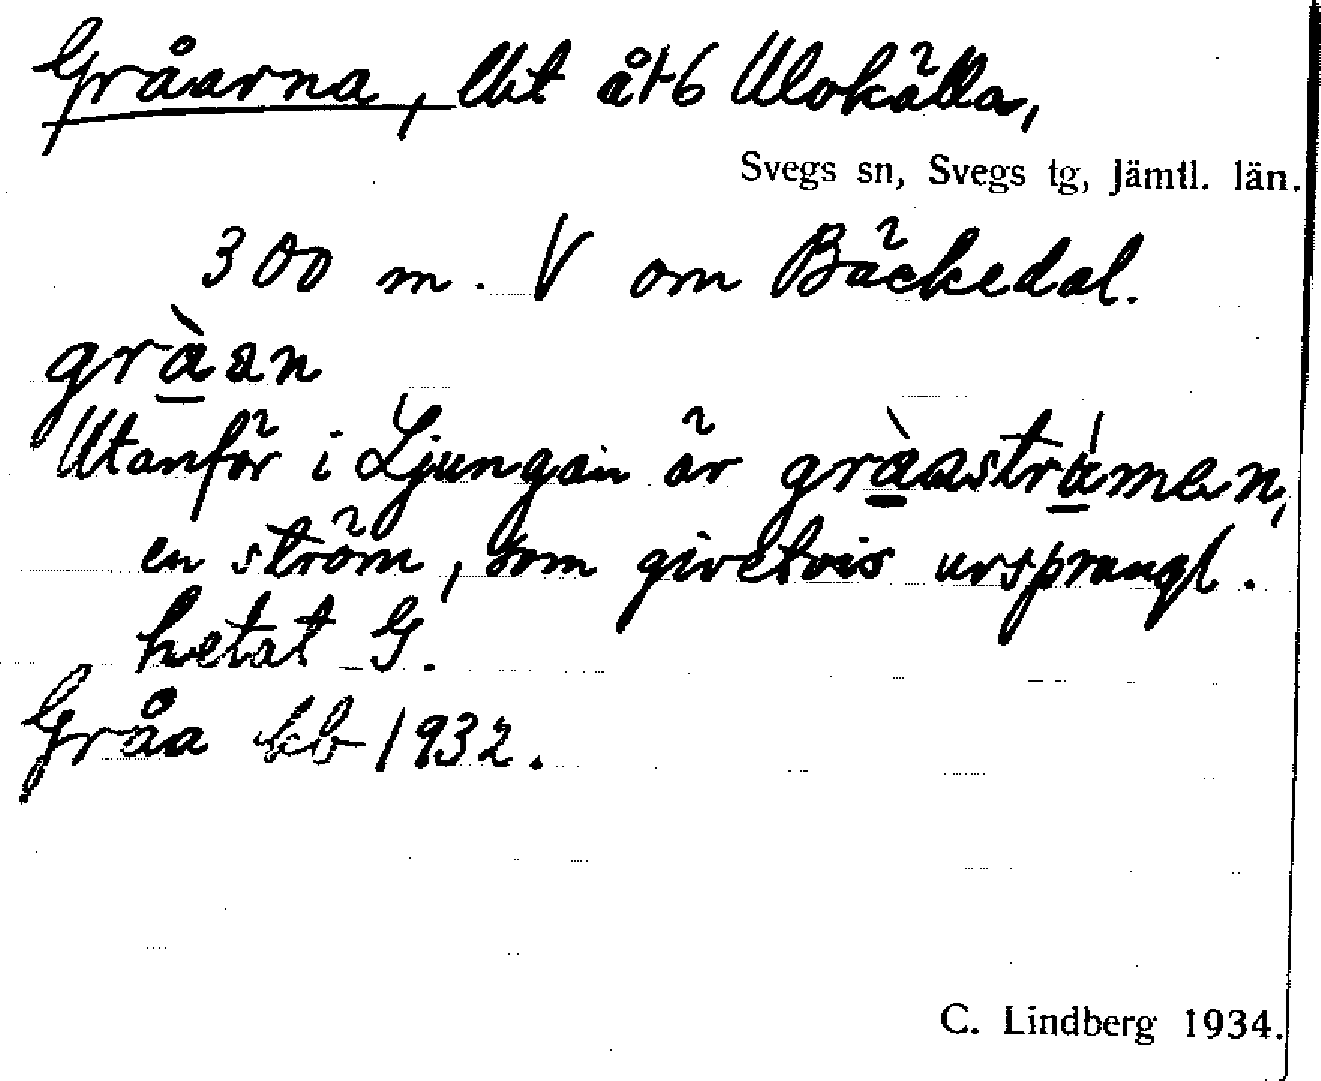 Gråarna, lht åt 6 Ulvkälla,
Svegs sn, Svegs tg, Jämtl. län.
300 m. V om Bäckedal.
gràan
Utanför i Ljungan är gràaströmen,
en ström, som givetvis ursprungl.
hetat G.
Gråa kb 1932.
C. Lindberg 1934.